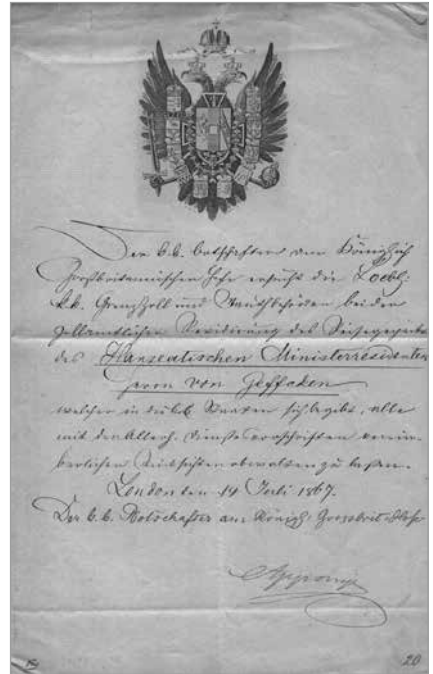 Der k.k. Botschafter am Königlich
Grossbritannischen Hofe ersucht die Loebl:
k.k. Grenzzoll und Mauthbehörden bei der
zollamtlichen Revidirung des Reisegepäcks
des Hanseatischen Ministerresidenten
Herrn von Geffcken
welcher in die k.k. Staaten sich begibt, alle
mit den Allerh. Dienstvorschriften verein-
barlichen Rücksichten obwalten zu lassen.
London den 14 Juli 1867.
Der k.k. Botschafter am Königl: Grossbrit: Hofe
Apponyi
20